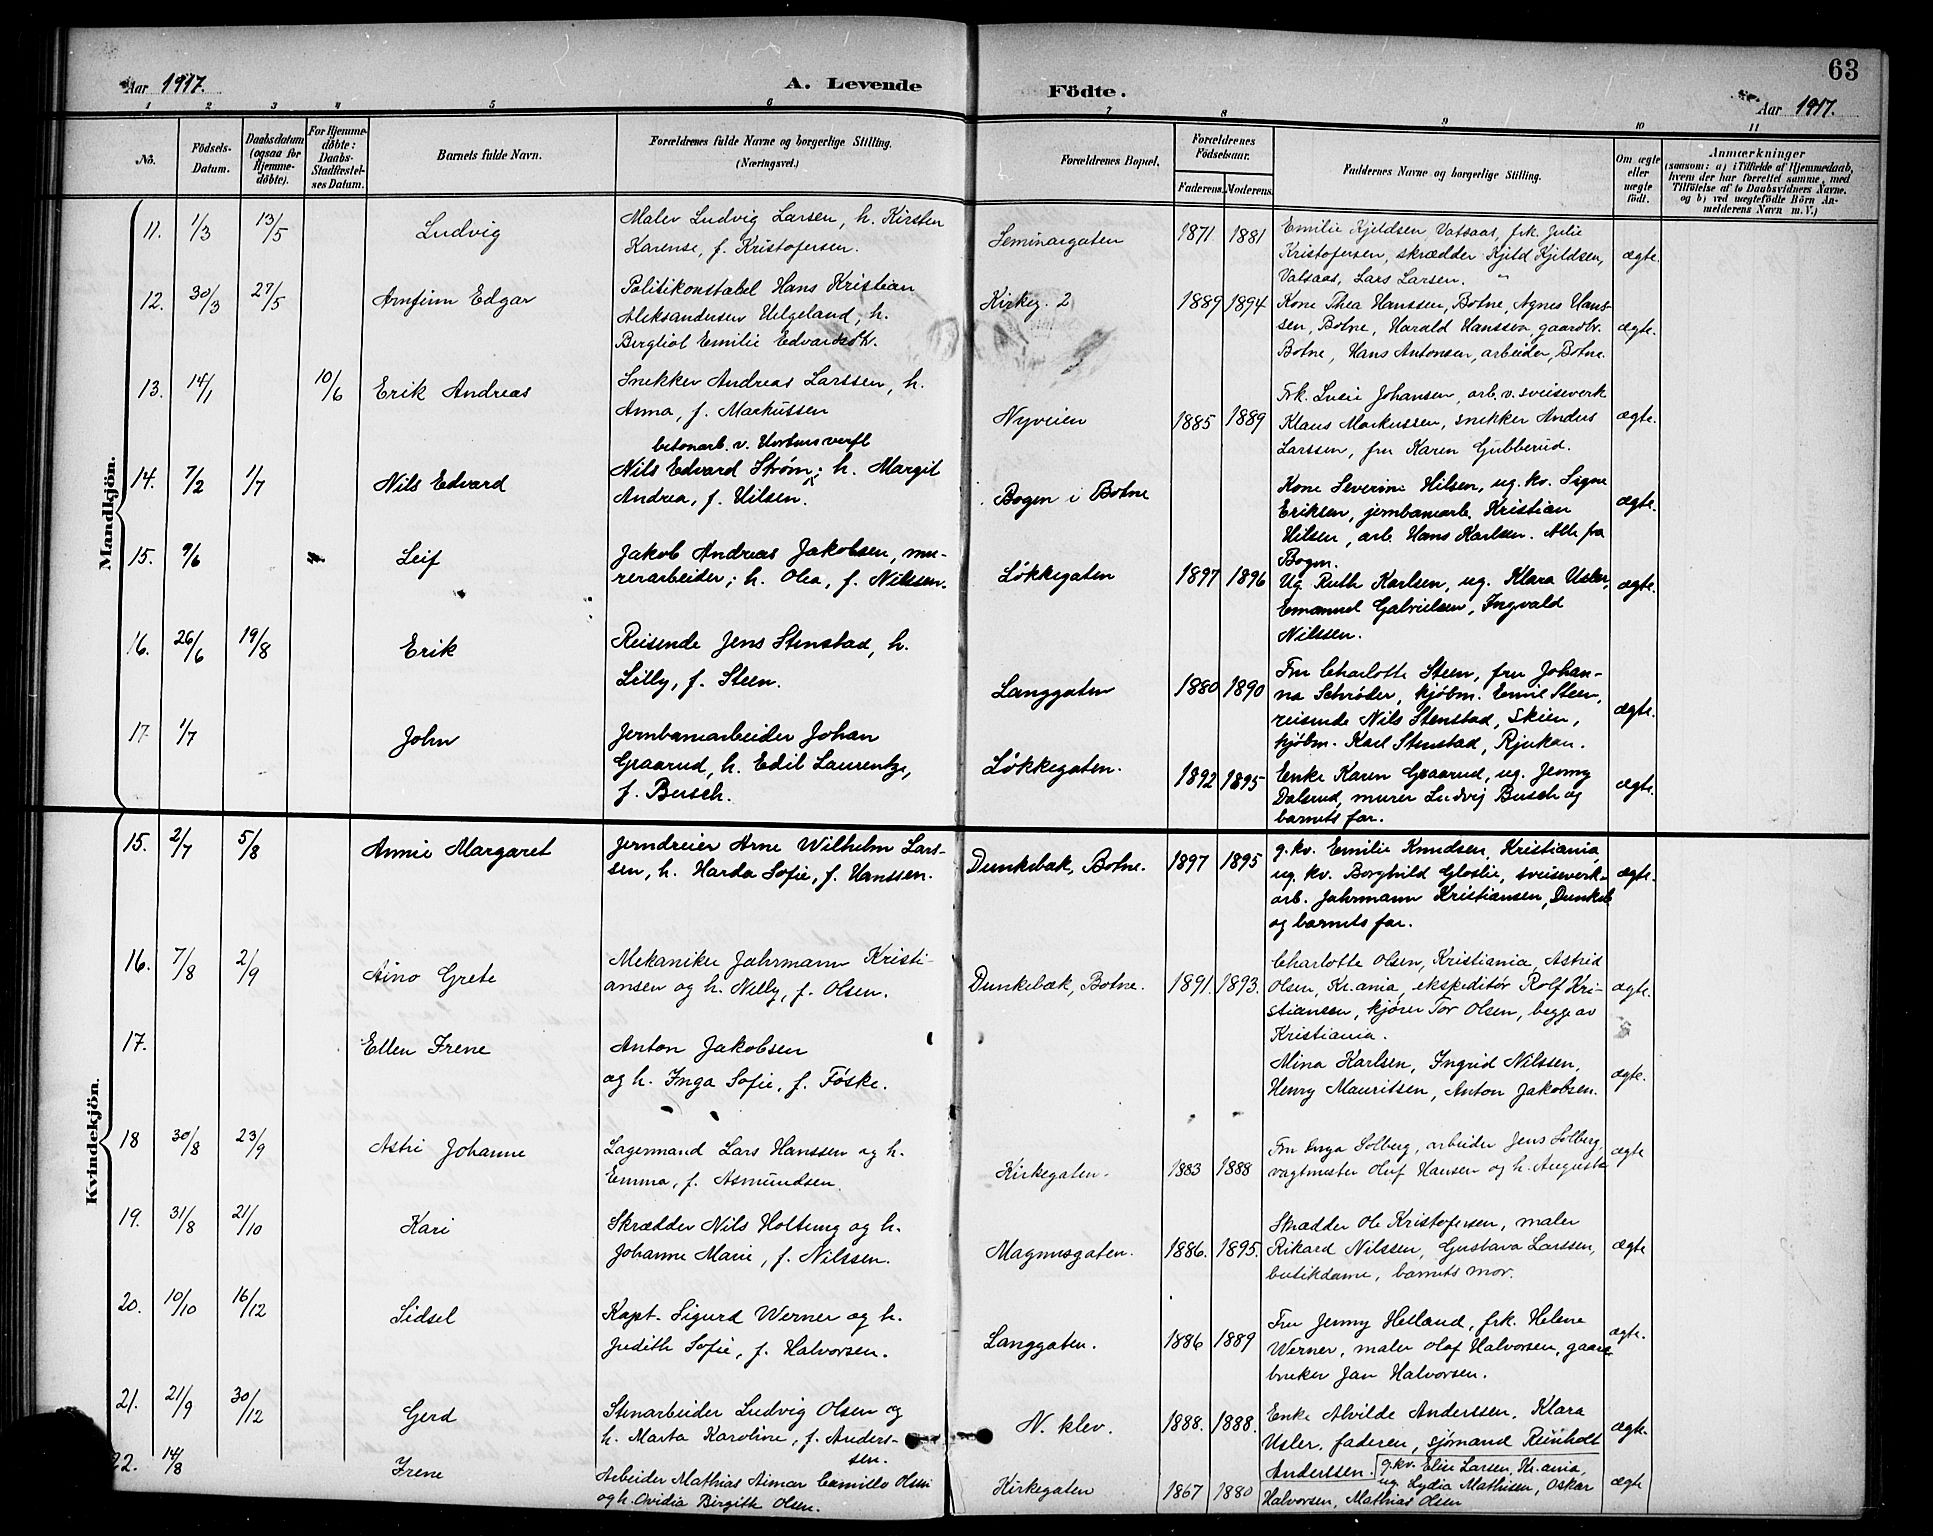 63
Aar 1917.
A. Levende Födte.
Aar 1917.
1 2 3 4 5 6 7 8 9 10 11
No.
Födsels-Datum.
Daabsdatum (ogsaa for Hjemme-döbte).
For Hjemme-döbte: Daabs-Stadfæstel-ses Datum.
Barnets fulde Navn.
Forældrenes fulde Navne og borgerlige Stilling.
(Næringsvei.)
Forældrenes Bopæl.
Forældrenes Födselsaar.
Faderens. Moderens.
Faddernes Navne og borgerlige Stilling.
Om ægte eller uægte födt.
Anmærkninger
(saasom: a) i Tilfælde af Hjemmedaab,
hvem der har forrettet samme, med
Tilföielse af to Daabsvidners Navne.
og b) ved uægtefödte Börn An-
melderens Navn m. V.)
Mandkjön.
11. 1/3 13/5 Ludvig
Maler Ludvig Larsen, h. Kirsten
Karense, f. Kristofersen.
Seminargaten 1871 1881
Emilie Kjeldsen, Vatsaas, frk. Julie
Kristofersen, skrædder Kjeld Kjeldsen,
Vatsaas, Lars Larsen. "
ægte.
12. 30/3 27/5 Arnfinn Edgar
Politikonstabel Hans Kristian
Aleksandersen Helgeland, h.
Bergliot Emilie Edvardsdtr.
Kirkeg. 2 1889 1894
Kone Thea Hanssen, Botne, Agnes Hans-
sen, Botne, Harald Hanssen, gaardbr.
Botne, Hans Antonsen, arbeider, Botne.
ægte.
13. 14/1 10/6 Erik Andreas
Snekker Andreas Larssen, h.
Anna, f. Markussen
Nyveien 1885 1889
Frk. Lucie Johansen, arb. v. sveiseverk
Klaus Markussen, snekker Anders
Larssen, fru Karen Gubberud.
ægte.
14. 7/2 1/7 Nils Edvard
betonarb. v. Hortens verft
Nils Edvard Strøm; h. Margit
Andrea, f. Hilsen.
Bogen i Botne
Kone Severine Hilsen, ug. kv. Signe
Eriksen, jernbanearb. Kristian
Hilsen, arb. Hans Karlsen. Alle fra
Bogen.
ægte.
15. 9/6 Leif
Jakob Andreas Jakobsen, mu-
rerarbeider; h. Olea, f. Nilssen.
Løkkegaten 1897 1896
Ug. Ruth Karlsen, ug. Klara Usler,
Emanuel Gabrielsen, Ingvald
Nilssen.
ægte.
16. 26/6 19/8 Erik
Reisende Jens Stenstad, h.
Lilly, f. Steen.
Langgaten 1880 1890
Fru Charlotte Steen, fru Johan-
na Schrøder, kjøbm. Emil Steen,
reisende Nils Stenstad, Skien,
kjøbm. Karl Stenstad, Rjukan.
ægte.
17. 1/7 John
Jernbanearbeider Johan
Graarud, h. Edil Laurentze,
f. Busch.
Løkkegaten. 1892 1895
Enke Karen Graarud, ug. Jenny
Dalsrud, murer Ludvig Busch og
barnets far.
ægte.
Kvindekjön.
15. 2/7 5/8 Annie Margaret
Jerndreier Arne Wilhelm Lars-
sen, h. Harda Sofie, f. Hanssen.
Dunkebæk, Botne. 1897 1895
g. kv. Emilie Knudsen, Kristiania,
ug. kv. Borghild Gloslie, sveiseverk-
arb. Jahrmann Kristiansen, Dunkeb
og barnets far.
ægte.
16. 7/8 2/9 Aino Grete
Mekaniker Jahrmann Kristi-
ansen og h. Nelly, f. Olsen.
Dunkebæk, Botne. 1891. 1893.
Charlotte Olsen, Kristiania, Astrid
Olsen, Kr.ania, ekspeditør Rolf Kri-
stiansen, kjører Tor Olsen, begge av
Kristiania.
ægte.
17. Ellen Irene
Anton Jakobsen
og h. Inga Sofie, f. Føske.
Mina Karlsen, Ingrid Nilssen,
Henry Mauritsen, Anton Jakobsen.
ægte.
18 30/8 23/9 Astri Johanne
Lagermand Lars Hanssen og h.
Emma, f. Asmundsen.
Kirkegaten. 1883 1888
Fru Inga Solberg, arbeider Jens Solberg,
vagtmester Oluf Hansen og h. Augusta
ægte
19. 31/8 21/10 Kari
Skrædder Nils Holtung og h.
Johanne Marie, f. Nilssen.
Magnusgaten. 1886. 1895.
Skrædder Ole Kristofersen, maler
Rikard Nilssen, Gustava Larssen,
butikdame, barnets mor.
ægte
20. 10/10 16/12 Sidsel
Kapt. Sigurd Werner og h.
Judith Sofie, f. Halvorsen.
Langgaten. 1886 1889
Fru Jenny Helland, frk. Helene
Werner, maler Olaf Halvorsen, gaard-
bruker Jan Halvorsen.
ægte.
21. 21/9 30/12 Gerd
Stenarbeider Ludvig Olsen og
h. Marta Karoline, f. Anders-
sen.
N. klev. 1888. 1888.
Enke Alvilde Anderssen, Klara
Usler, faderen, sjømand Reinholt
Anderssen.
ægte.
22. 14/8 Irene
Arbeider Mathias Aimar Camillo Olsen
og h. Ovidia Birgitte Olsen.
Kirkegaten 1867 1880
g.kv. Elise Larsen, Kr.ania,
ug. Lydia Mathisen, Oskar
Halvorsen, Mathias Olsen
ægte